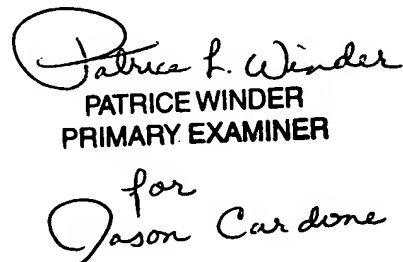 Patrice L. Winder
PATRICE WINDER
PRIMARY EXAMINER
for
Jason Cardone